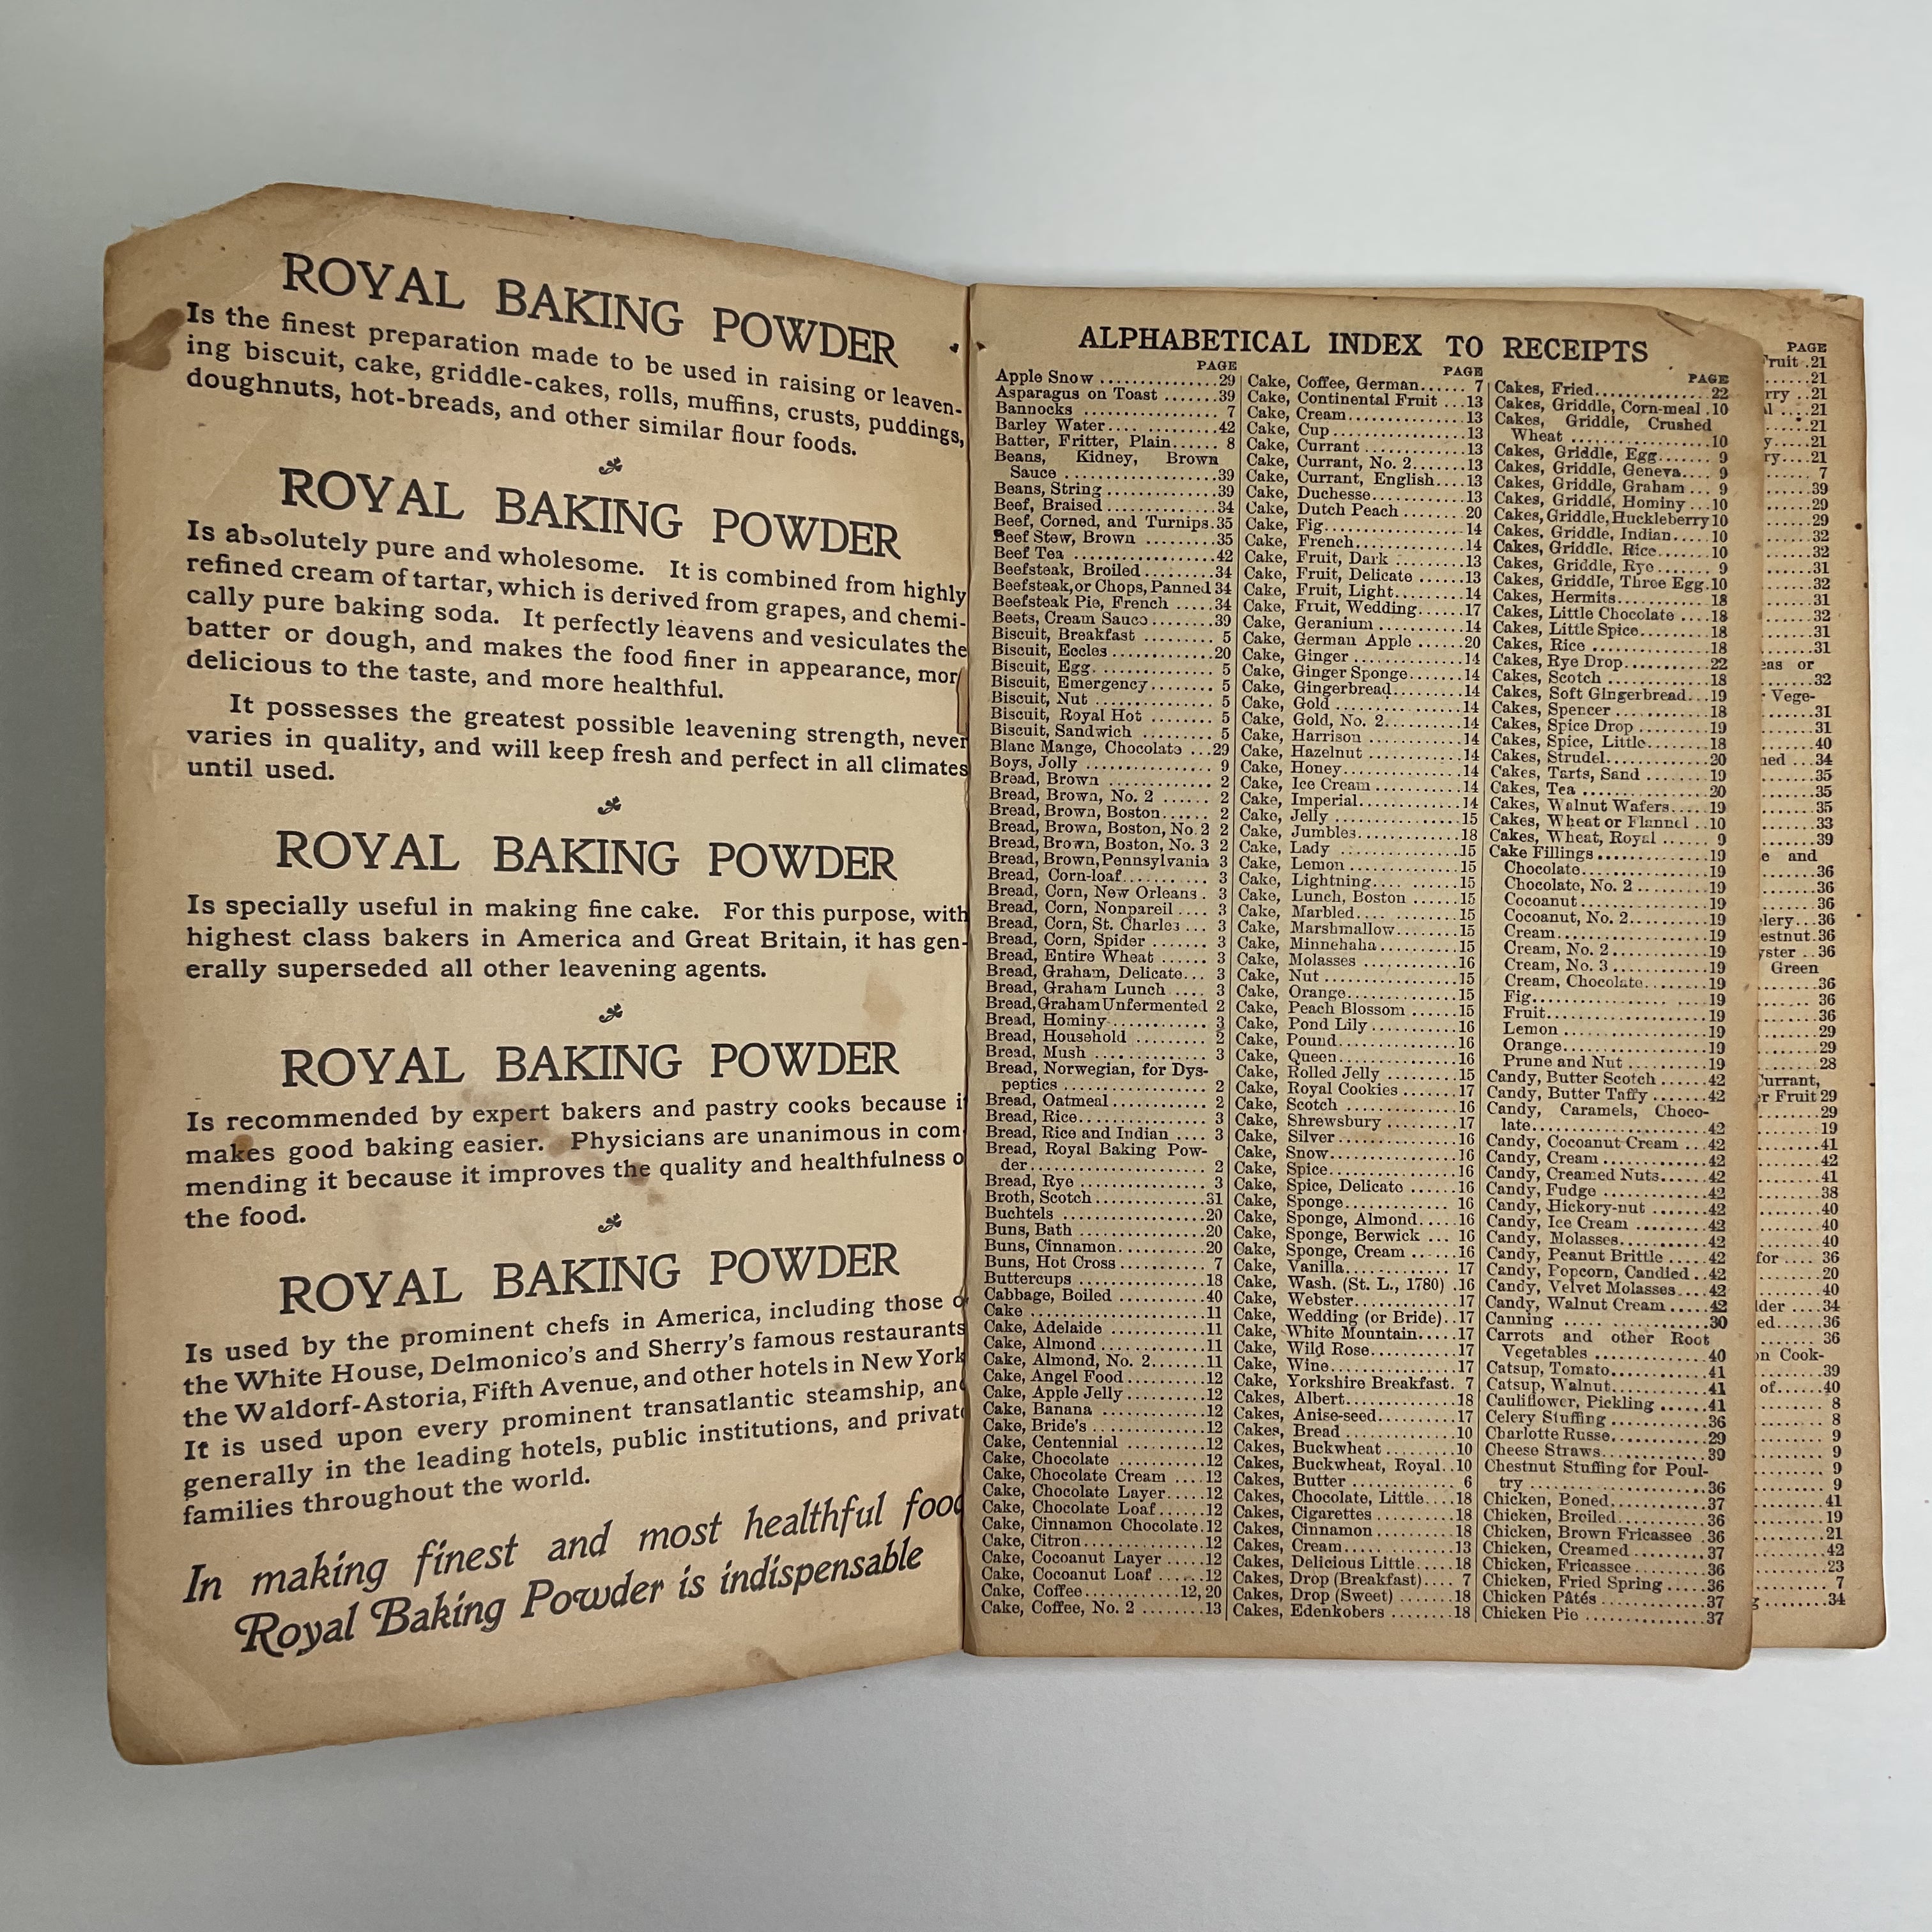 ROYAL BAKING POWDER
Is the finest preparation made to be used in raising or leaven-
ing biscuit, cake, griddle-cakes, rolls, muffins, crusts, puddings,
doughnuts, hot-breads, and other similar flour foods.
ROYAL BAKING POWDER
Is absolutely pure and wholesome. It is combined from highly
refined cream of tartar, which is derived from grapes, and chemi-
cally pure baking soda. It perfectly leavens and vesiculates the
batter or dough, and makes the food finer in appearance, mor
delicious to the taste, and more healthful.
It possesses the greatest possible leavening strength, never
varies in quality, and will keep fresh and perfect in all climates
until used.
ROYAL BAKING POWDER
Is specially useful in making fine cake. For this purpose, with
highest class bakers in America and Great Britain, it has gen-
erally superseded all other leavening agents.
ROYAL BAKING POWDER
Is recommended by expert bakers and pastry cooks because i
makes good baking easier. Physicians are unanimous in com-
mending it because it improves the quality and healthfulness o
the food.
ROYAL BAKING POWDER
Is used by the prominent chefs in America, including those o
the White House, Delmonico's and Sherry's famous restaurants
the Waldorf-Astoria, Fifth Avenue, and other hotels in New York
It is used upon every prominent transatlantic steamship, and
generally in the leading hotels, public institutions, and private
families throughout the world.
In making finest and most healthful food
Royal Baking Powder is indispensable
ALPHABETICAL INDEX TO RECEIPTS
PAGE
Apple Snow ...............29
Asparagus on Toast .......39
Bannocks ................. 7
Barley Water.... .........42
Batter, Fritter, Plain...... 8
Beans, Kidney, Brown
Sauce ...................39
Beans, String .............39
Beef, Braised .............34
Beef, Corned, and Turnips.35
Beef Stew, Brown ........35
Beef Tea .................42
Beefsteak, Broiled.........34
Beefsteak, or Chops, Panned 34
Beefsteak Pie, French .....34
Beets, Cream Sauce .......39
Biscuit, Breakfast ......... 5
Biscuit, Eccles ............20
Biscuit, Egg............... 5
Biscuit, Emergency........ 5
Biscuit, Nut .............. 5
Biscuit, Royal Hot ........ 5
Biscuit, Sandwich ......... 5
Blanc Mange, Chocolate ...29
Boys, Jolly ............... 9
Bread, Brown ............. 2
Bread, Brown, No. 2 ...... 2
Bread, Brown, Boston...... 2
Bread, Brown, Boston, No. 2 2
Bread, Brown, Boston, No. 3 2
Bread, Brown, Pennsylvania 3
Bread, Corn-loaf........... 3
Bread, Corn, New Orleans . 3
Bread, Corn, Nonpareil .... 3
Bread, Corn, St. Charles ... 3
Bread, Corn, Spider ....... 3
Bread, Entire Wheat ...... 3
Bread, Graham, Delicate... 3
Bread, Graham Lunch ..... 3
Bread, Graham Unfermented 2
Bread, Hominy............ 3
Bread, Household ......... 2
Bread, Mush .............. 3
Bread, Norwegian, for Dys-
peptics ................. 2
Bread, Oatmeal ........... 2
Bread, Rice............... 3
Bread, Rice and Indian .... 3
Bread, Royal Baking Pow-
der...................... 2
Bread, Rye ............... 3
Broth, Scotch .............31
Buchtels ..................20
Buns, Bath ...............20
Buns, Cinnamon...........20
Buns, Hot Cross .......... 7
Buttercups ...............18
Cabbage, Boiled ..........40
Cake .....................11
Cake, Adelaide ...........11
Cake, Almond ............11
Cake, Almond, No. 2......11
Cake, Angel Food .........12
Cake, Apple Jelly .........12
Cake, Banana .............12
Cake, Bride's .............12
Cake, Centennial .........12
Cake, Chocolate ..........12
Cake, Chocolate Cream ....12
Cake, Chocolate Layer.....12
Cake, Chocolate Loaf......12
Cake, Cinnamon Chocolate.12
Cake, Citron..............12
Cake, Cocoanut Layer .....12
Cake, Cocoanut Loaf ......12
Cake, Coffee...........12, 20
Cake, Coffee, No. 2 ........13
PAGE
Cake, Coffee, German...... 7
Cake, Continental Fruit ...13
Cake, Cream..............13
Cake, Cup................13
Cake, Currant ............13
Cake, Currant, No. 2......13
Cake, Currant, English....13
Cake, Duchesse............13
Cake, Dutch Peach .......20
Cake, Fig.................14
Cake, French..............14
Cake, Fruit, Dark ........13
Cake, Fruit, Delicate .....13
Cake, Fruit, Light........14
Cake, Fruit, Wedding.....17
Cake, Geranium ..........14
Cake, German Apple .....20
Cake, Ginger .............14
Cake, Ginger Sponge......14
Cake, Gingerbread........14
Cake, Gold ...............14
Cake, Gold, No. 2.........14
Cake, Harrison ...........14
Cake, Hazelnut ...........14
Cake, Honey..............14
Cake, Ice Cream ..........14
Cake, Imperial............14
Cake, Jelly ...............15
Cake, Jumbles............18
Cake, Lady ...............15
Cake, Lemon .............15
Cake, Lightning.... ......15
Cake, Lunch, Boston .....15
Cake, Marbled.... .......15
Cake, Marshmallow.......15
Cake, Minnehaha ........15
Cake, Molasses ...........16
Cake, Nut ................15
Cake, Orange.............15
Cake, Peach Blossom .....15
Cake, Pond Lily ..........16
Cake, Pound..............16
Cake, Queen..............16
Cake, Rolled Jelly ........15
Cake, Royal Cookies ......17
Cake, Scotch .............16
Cake, Shrewsbury ........17
Cake, Silver..............16
Cake, Snow...............16
Cake, Spice...............16
Cake, Spice, Delicate .....16
Cake, Sponge.............16
Cake, Sponge, Almond.....16
Cake, Sponge, Berwick ...16
Cake, Sponge, Cream .....16
Cake, Vanilla.............17
Cake, Wash. (St. L., 1780) .16
Cake, Webster............17
Cake, Wedding (or Bride)..17
Cake, White Mountain.....17
Cake, Wild Rose..........17
Cake, Wine...............17
Cake, Yorkshire Breakfast. 7
Cakes, Albert.............18
Cakes, Anise-seed.........17
Cakes, Bread .............10
Cakes, Buckwheat ........10
Cakes, Buckwheat, Royal..10
Cakes, Butter ............ 6
Cakes, Chocolate, Little....18
Cakes, Cigarettes .........18
Cakes, Cinnamon .........18
Cakes, Cream.............13
Cakes, Delicious Little.....18
Cakes, Drop (Breakfast).... 7
Cakes, Drop (Sweet) ......18
Cakes, Edenkobers ........18
PAGE
Cakes, Fried..............22
Cakes, Griddle, Corn-meal .10
Cakes, Griddle, Crushed
Wheat ..................10
Cakes, Griddle, Egg....... 9
Cakes, Griddle, Geneva.... 9
Cakes, Griddle, Graham ... 9
Cakes, Griddle, Hominy ...10
Cakes, Griddle, Huckleberry 10
Cakes, Griddle, Indian.....10
Cakes, Griddle, Rice.......10
Cakes, Griddle, Rye....... 9
Cakes, Griddle, Three Egg.10
Cakes, Hermits............18
Cakes, Little Chocolate ....18
Cakes, Little Spice........18
Cakes, Rice ..............18
Cakes, Rye Drop..........22
Cakes, Scotch ............18
Cakes, Soft Gingerbread...19
Cakes, Spencer ...........18
Cakes, Spice Drop ........19
Cakes, Spice, Little........18
Cakes, Strudel............20
Cakes, Tarts, Sand .......19
Cakes, Tea ...............20
Cakes, Walnut Wafers.....19
Cakes, Wheat or Flannel ..10
Cakes, Wheat, Royal ...... 9
Cake Fillings..............19
Chocolate...............19
Chocolate, No. 2 ........19
Cocoanut...............19
Cocoanut, No. 2.........19
Cream..................19
Cream, No. 2 ...........19
Cream, No. 3 ...........19
Cream, Chocolate........19
Fig.....................19
Fruit...................19
Lemon .................19
Orange.................19
Prune and Nut ..........19
Candy, Butter Scotch ......42
Candy, Butter Taffy .......42
Candy, Caramels, Choco-
late.....................42
Candy, Cocoanut Cream ...42
Candy, Cream ............42
Candy, Creamed Nuts......42
Candy, Fudge ............42
Candy, Hickory-nut .......42
Candy, Ice Cream ........42
Candy, Molasses..........42
Candy, Peanut Brittle .....42
Candy, Popcorn, Candied ..42
Candy, Velvet Molasses....42
Candy, Walnut Cream .....42
Canning ..... ............30
Carrots and other Root
Vegetables ..............40
Catsup, Tomato...........41
Catsup, Walnut...........41
Cauliflower, Pickling ......41
Celery Stuffing ...........36
Charlotte Russe...........29
Cheese Straws.............39
Chestnut Stuffing for Poul-
try .....................36
Chicken, Boned...........37
Chicken, Broiled..........36
Chicken, Brown Fricassee .36
Chicken, Creamed ........37
Chicken, Fricassee ........36
Chicken, Fried Spring .....36
Chicken Pâtés ............37
Chicken Pie ..............37
PAGE
Fruit .21
.......21
rry ..21
.21
.......21
.21
ry....21
7
39
29
29
32
32
31
32
31
32
31
31
eas or
.......32
Vege-
.......31
.......31
.......40
ned ...34
.......35
.......35
.......35
.......33
.......39
e and
.......36
.......36
.......36
lery...36
estnut.36
yster ..36
Green
.......36
.......36
.......36
.......29
.......29
.......28
Currant,
er Fruit 29
.......29
.......19
.......41
.......42
.......41
.......38
.......40
.......40
.......40
for ....36
.......20
.......40
lder ....34
ed.....36
.......36
on Cook-
.......39
of....40
....... 8
....... 8
....... 9
....... 9
....... 9
....... 9
.......41
.......19
.......21
.......42
.......23
....... 7
g......34